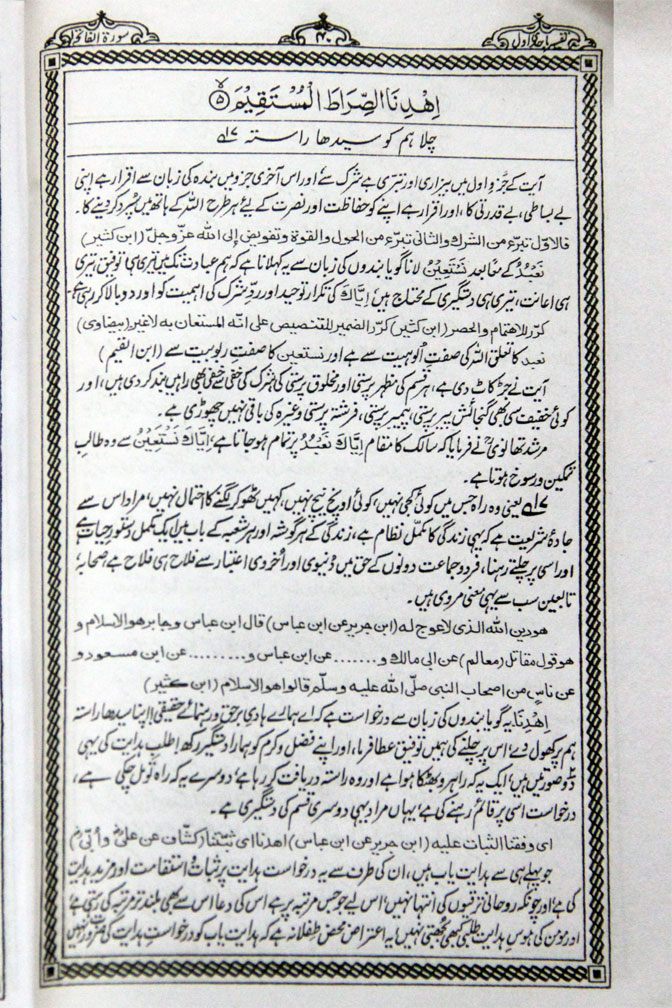 سورۃ الفاتحۃ ۱ ۴۰ تفسیر ماجدی اول
اِهْدِنَا الصِّرَاطَ الْمُسْتَقِيْمَ ﴿۵﴾
چلا ہم کو سیدھا راستہ ۱۷
آیت کے جزو اول میں بیزاری اور تبری ہے شرک سے، اور اس آخری جزو میں بندہ کی زبان سے اقرار ہے اپنی
بے بساطی، بے قدرتی کا، اور اقرار ہے اپنے کو حفاظت اور نصرت کے لئے ہر طرح اللہ کے ہاتھ میں سپرد کر دینے کا۔
فالاول تبرّء من الشرك والثانی تبرّء من الحول والقوة وتفویض إلی الله عزّ وجلّ (ابن کثیر)
نَعْبُدُ کے معًا بعد نَسْتَعِيْنُ لانا گویا بندوں کی زبان سے یہ کہلانا ہے کہ ہم عبادت تک میں تیری ہی توفیق، تیری
ہی اعانت، تیری ہی دستگیری کے محتاج ہیں، اِيَّاكَ کی تکرار توحید اور ردِّ شرک کی اہمیت کو اور دوبالا کر رہی ہے
کرّر للاهتمام والحصر (ابن کثیر) کرّر الضمیر للتنصیص علی انّه المستعان به لا غیر (بیضاوی)
نعبد کا تعلق اللہ کی صفتِ اُلوہیت سے ہے اور نستعین کا صفتِ ربوبیت سے (ابن القیم)
آیت نے جڑ کاٹ دی ہے، ہر قسم کی مظہر پرستی اور مخلوق پرستی کی، شرک کی خفی سے خفی بھی راہیں بند کر دی ہیں، اور
کوئی خفیف سی بھی گنجائش پیر پرستی، پیمبر پرستی، فرشتہ پرستی وغیرہ کی باقی نہیں چھوڑی ہے۔
مرشد تھانویؒ نے فرمایا کہ سالک کا مقام اِيَّاكَ نَعْبُدُ پر تمام ہو جاتا ہے، اِيَّاكَ نَسْتَعِيْنُ سے وہ طالبِ
تمکین و رسوخ ہوتا ہے۔
۱۷ یعنی وہ راہ جس میں کوئی کجی نہیں، کوئی اونچ نیچ نہیں، کہیں ٹھوکر لگنے کا احتمال نہیں، مراد اس سے
جادۂ شریعت ہے کہ یہی زندگی کا مکمل نظام ہے، زندگی کے ہر گوشہ اور ہر شعبہ کے باب میں ایک مکمل دستورِ حیات ہے
اور اسی پر چلتے رہنا، فرد و جماعت دونوں کے حق میں دنیوی اور اُخروی اعتبار سے فلاح ہی فلاح ہے صحابہؓ،
تابعین سب سے یہی معنی مروی ہیں۔
هو دین الله الذی لا عوج له (ابن جریر عن ابن عباس) قال ابن عباس وجابر هو الاسلام و
هو قول مقاتل (معالم) عن ابی مالك و....... عن ابن عباس و.......... عن ابن مسعود و
عن ناسٍ من اصحاب النبی صلّی الله علیه وسلّم قالوا هو الاسلام (ابن کثیر)
اِهْدِنَا یہ گویا بندوں کی زبان سے درخواست ہے کہ اے ہمارے ہادیِ برحق و رہنمائے حقیقی! اپنا سیدھا راستہ
ہم پر کھول دے، اس پر چلنے کی ہمیں توفیق عطا فرما، اور اپنے فضل و کرم کو ہمارا دستگیر رکھ! طلبِ ہدایت کی یہی
دو صورتیں ہیں، ایک یہ کہ راہرو بھٹکا ہوا ہے اور وہ راستہ دریافت کر رہا ہے، دوسرے یہ کہ راہ تو مل چکی ہے،
درخواست اسی پر قائم رہنے کی ہے، یہاں مراد یہی دوسری قسم کی دستگیری ہے۔
ای وفقنا الثبات علیه (ابن جریر عن ابن عباس) اهدنا ای ثبّتنا (کشّاف عن علیؓ و اُبیؓ)
جو پہلے ہی سے ہدایت یاب ہیں، ان کی طرف سے یہ درخواست ہدایت پر ثبات و استقامت اور مزید ہدایت
کی ہے، اور چونکہ روحانی ترقیوں کی انتہا نہیں، اس لیے جو جس مرتبہ پر ہے اس کی دعا اس سے بھی بلند تر مرتبہ کی رہتی ہے،
اور مومن کی ہوسِ ہدایت طلبی کبھی بجھتی نہیں، یہ اعتراض محض طفلانہ ہے کہ ہدایت یاب کو درخواستِ ہدایت کی ضرورت نہیں